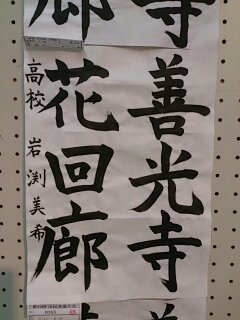 善光寺
花回廊
高校 岩渕美希